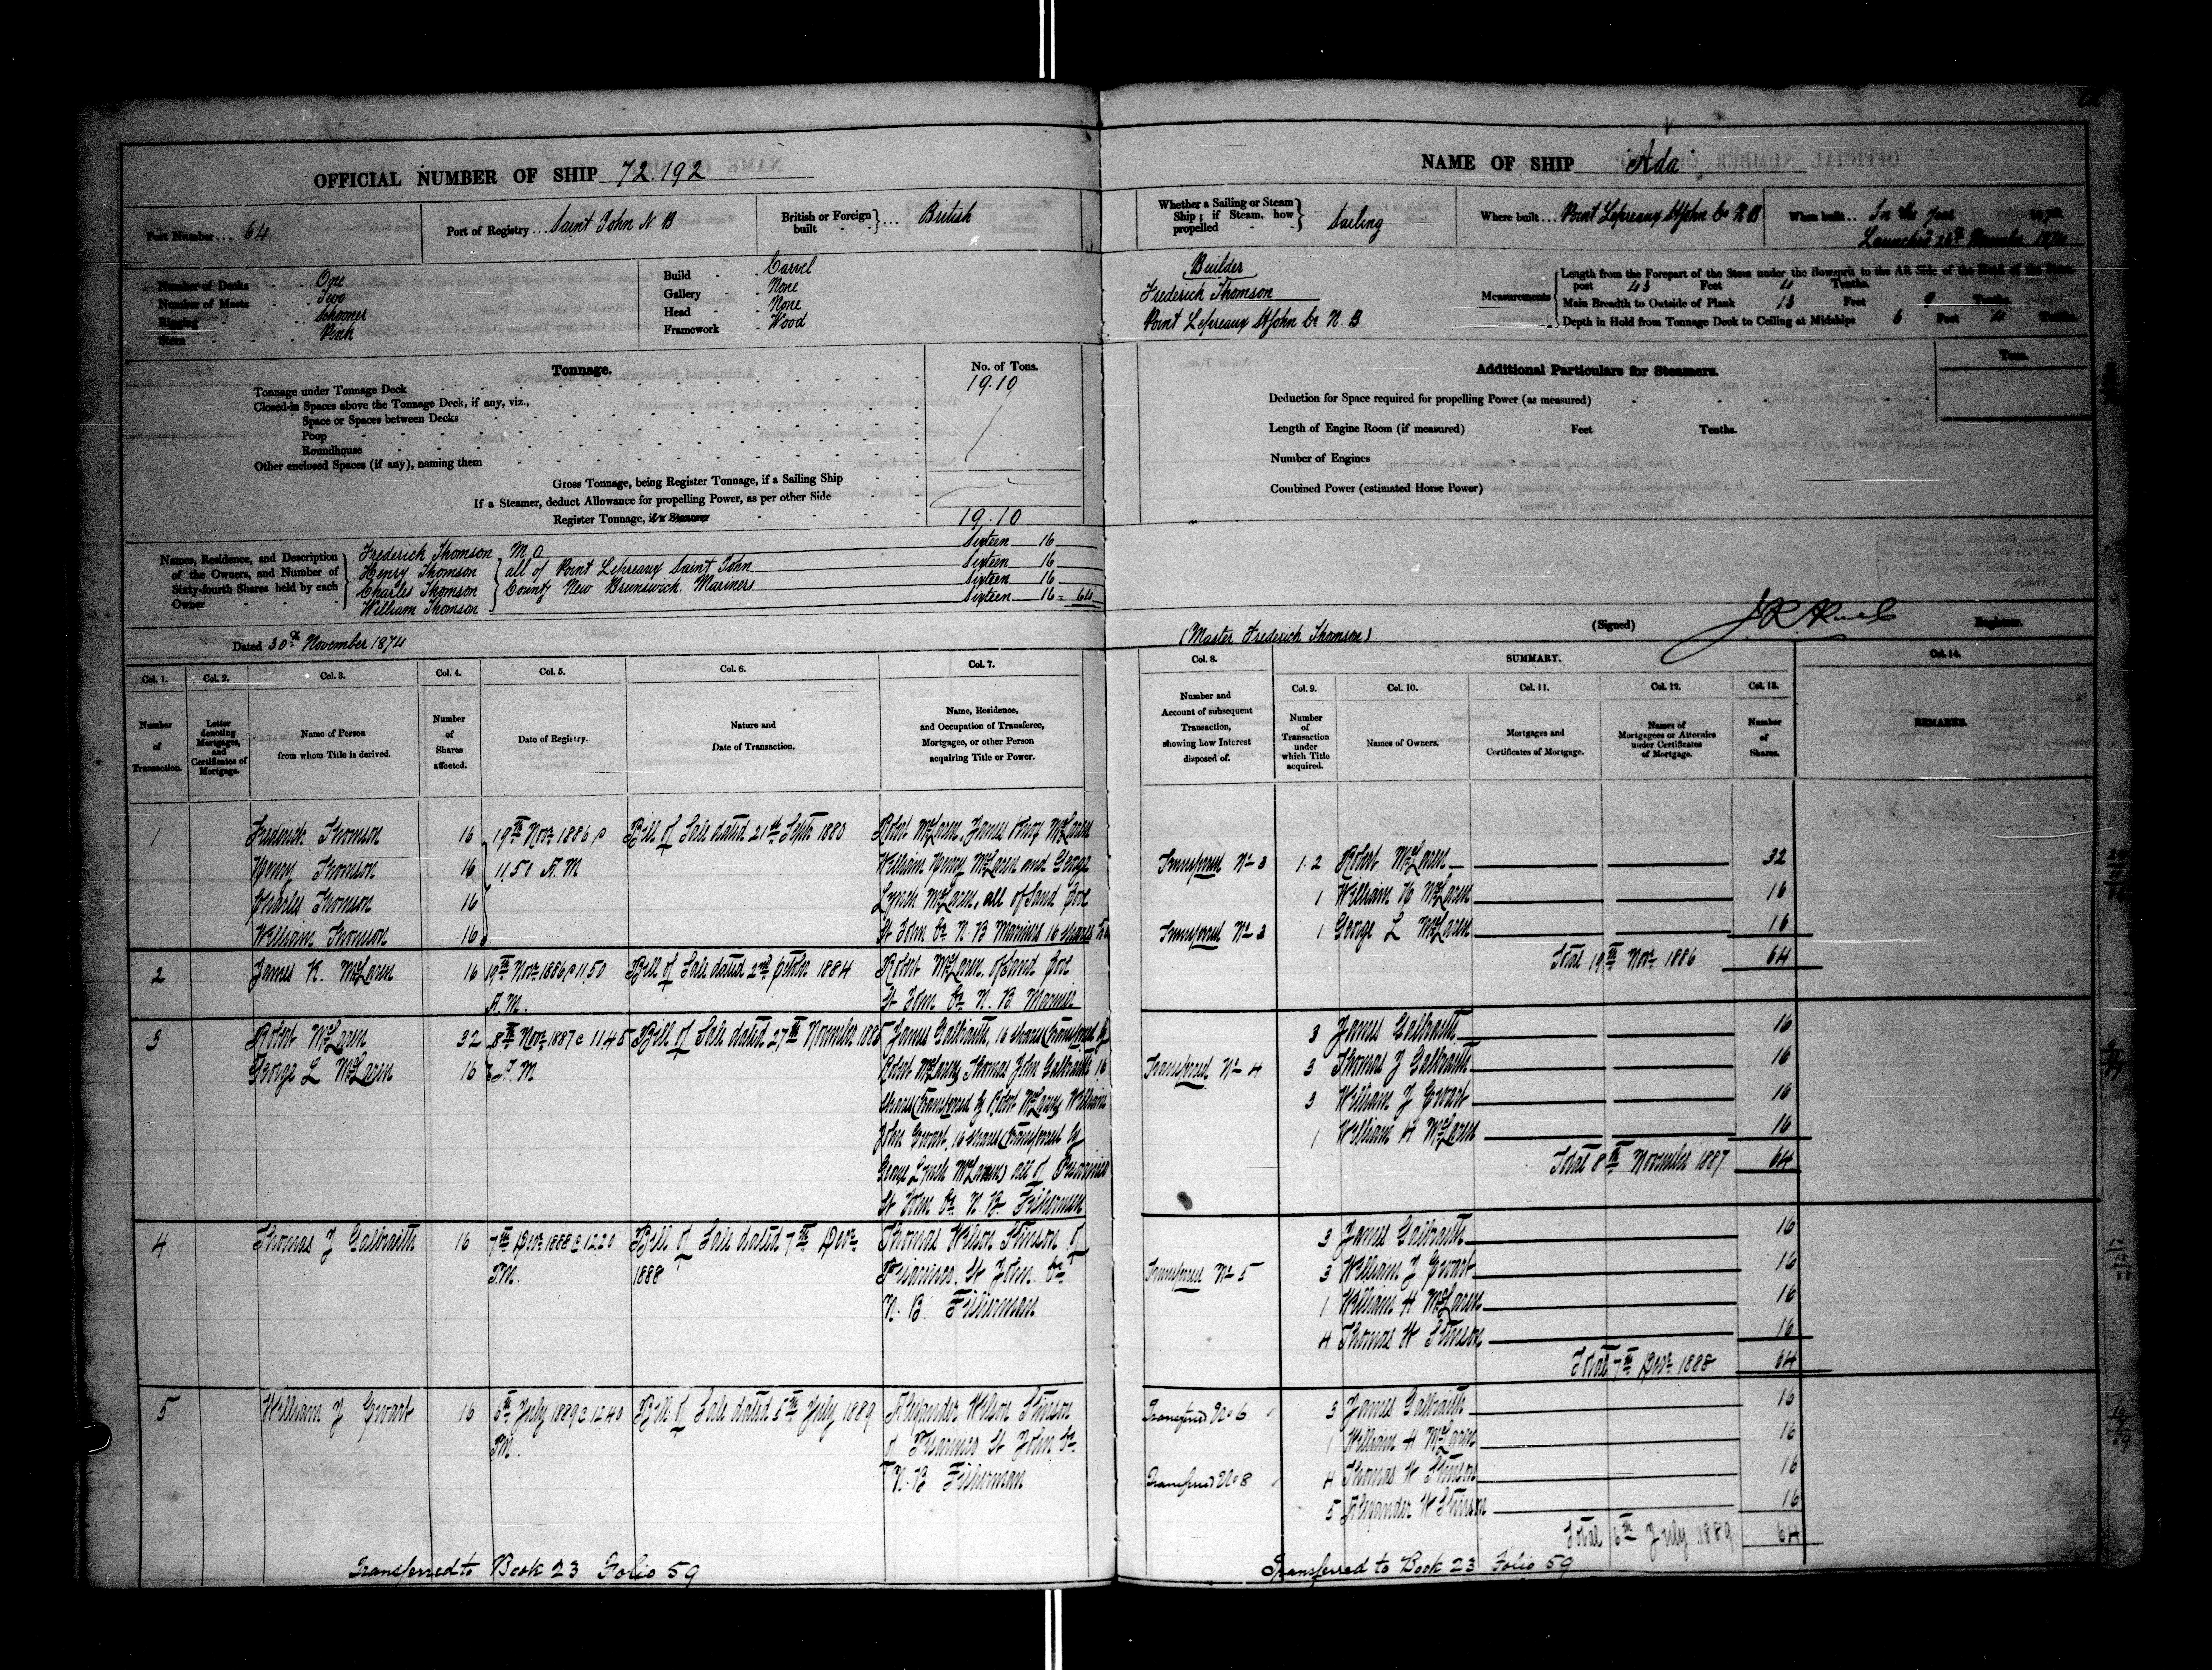 OFFICIAL NUMBER OF SHIP 72.192
Port Number ... 64
Port of Registry ... Saint John N. B
British or Foreign built } ... British
Number of Decks One
Number of Masts Two
Rigging Schooner
Stern Pink
Build Carvel
Gallery None
Head None
Framework Wood
Tonnage.
No. of Tons.
Tonnage under Tonnage Deck 19.10
Closed-in Spaces above the Tonnage Deck, if any, viz.,
Space or Spaces between Decks
Poop
Roundhouse
Other enclosed Spaces (if any), naming them
Gross Tonnage, being Register Tonnage, if a Sailing Ship
If a Steamer, deduct Allowance for propelling Power, as per other Side
Register Tonnage, if a Steamer 19.10
Names, Residence, and Description of the Owners, and Number of Sixty-fourth Shares held by each Owner
Frederick Thomson M O Sixteen 16
Henry Thomson } all of Point Lepreaux Saint John Sixteen 16
Charles Thomson } County New Brunswick. Mariners Sixteen 16
William Thomson Sixteen 16 = 64
Dated 30th November 1874
NAME OF SHIP "Ada"
Whether a Sailing or Steam Ship; if Steam, how propelled } Sailing
Where built ... Point Lepreaux St John Co N B
When built .. In the Year
Launched 26th November 1874
Builder
Frederick Thomson
Point Lepreaux St John Co N. B
Measurements
Length from the Forepart of the Stem under the Bowsprit to the Aft Side of the Head of the Stern-
post 43 Feet 4 Tenths.
Main Breadth to Outside of Plank 13 Feet 9 Tenths.
Depth in Hold from Tonnage Deck to Ceiling at Midships 6 Feet Tenths.
Additional Particulars for Steamers.
Tons.
Deduction for Space required for propelling Power (as measured)
Length of Engine Room (if measured) Feet Tenths.
Number of Engines
Combined Power (estimated Horse Power)
(Master Frederick Thomson)
(Signed) Registrar.
Col. 1. Col. 2. Col. 3. Col. 4. Col. 5. Col. 6. Col. 7.
Number of Transaction.
Letter denoting Mortgages, and Certificates of Mortgage.
Name of Person from whom Title is derived.
Number of Shares affected.
Date of Registry.
Nature and Date of Transaction.
Name, Residence, and Occupation of Transferee, Mortgagee, or other Person acquiring Title or Power.
Col. 8. SUMMARY. Col. 14.
Col. 9. Col. 10. Col. 11. Col. 12. Col. 13.
Number and Account of subsequent Transaction, showing how Interest disposed of.
Number of Transaction under which Title acquired.
Names of Owners.
Mortgages and Certificates of Mortgage.
Names of Mortgagees or Attornies under Certificates of Mortgage.
Number of Shares.
REMARKS.
1 Frederick Thomson 16 19th Novr 1886 @ Bill of Sale dated 21st Septr 1880 Robert McLaren, James McLaren
Henry Thomson 16 11,50 A.M William Henry McLaren and George
Charles Thomson 16 Lynch McLaren, all of Sand Cove
William Thomson 16 St John Co N. B Mariners 16 shares
2 James K. McLaren 16 19th Novr 1886 @ 11,50 Bill of Sale dated 2nd 1884 Robert McLaren of Sand Cove
A.M. St John Co N. B. Mariner
3 Robert McLaren 32 8th Novr 1887 @ 11.45 Bill of Sale dated 27th November 188 James Galbraith, 16 shares (transferred by
George L McLaren 16 A.M Robert McLaren) Thomas John Galbraith 16
shares (transferred by Robert McLaren) William
John Ewart, 16 shares (transferred by
George Lynch McLaren) all of
St John Co. N. B. Fishermen
4 Thomas J Galbraith 16 7th Decr 1888 @ 12.20 Bill of Sale dated 7th Decr Thomas Wilson Stinson of
P.M. 1888 St John Co
N. B. Fisherman
5 William J Ewart 16 6th July 1889 @ 12.40 Bill of Sale dated 5th July 1889 Alexander Wilson Stinson
P.M. of St John Co
N. B Fisherman
Transferred to Book 23 Folio 59
Transferred No 3 1.2 Robert McLaren 32
1 William H McLaren 16
Transferred No 3 1 George L McLaren 16
Total 19th Novr 1886 64
3 James Galbraith 16
Transferred No 4 3 Thomas J Galbraith 16
3 William J Ewart 16
1 William H McLaren 16
Total 8th November 1887 64
3 James Galbraith 16
Transferred No 5 3 William J Ewart 16
1 William H McLaren 16
4 Thomas W Stinson 16
Total 7th Decr 1888 64
Transferred No 6 3 James Galbraith 16
1 William H McLaren 16
Transferred No 8 4 Thomas W Stinson 16
5 Alexander W Stinson 16
Total 6th July 1889 64
Transferred to Book 23 Folio 59